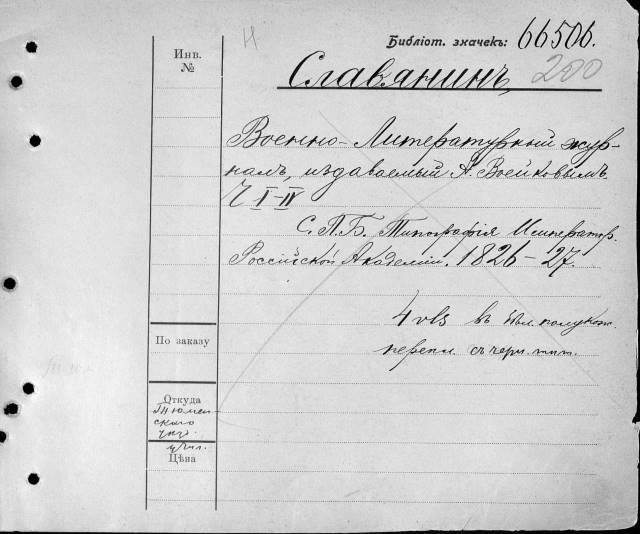 Н
Библіот. значекъ: 66506.
Инв.
№
Славянинъ,
200
Военно-Литературный жур-
налъ, издаваемый А. Воейковымъ.
Ч I-IV
С.П.Б. Типографія Император.
Россійской Академіи. 1826-27.
4 vls въ полукож.
перепл. с черн. тит.
По заказу
Откуда
Тюмен-
скаго
учил.
Цѣна